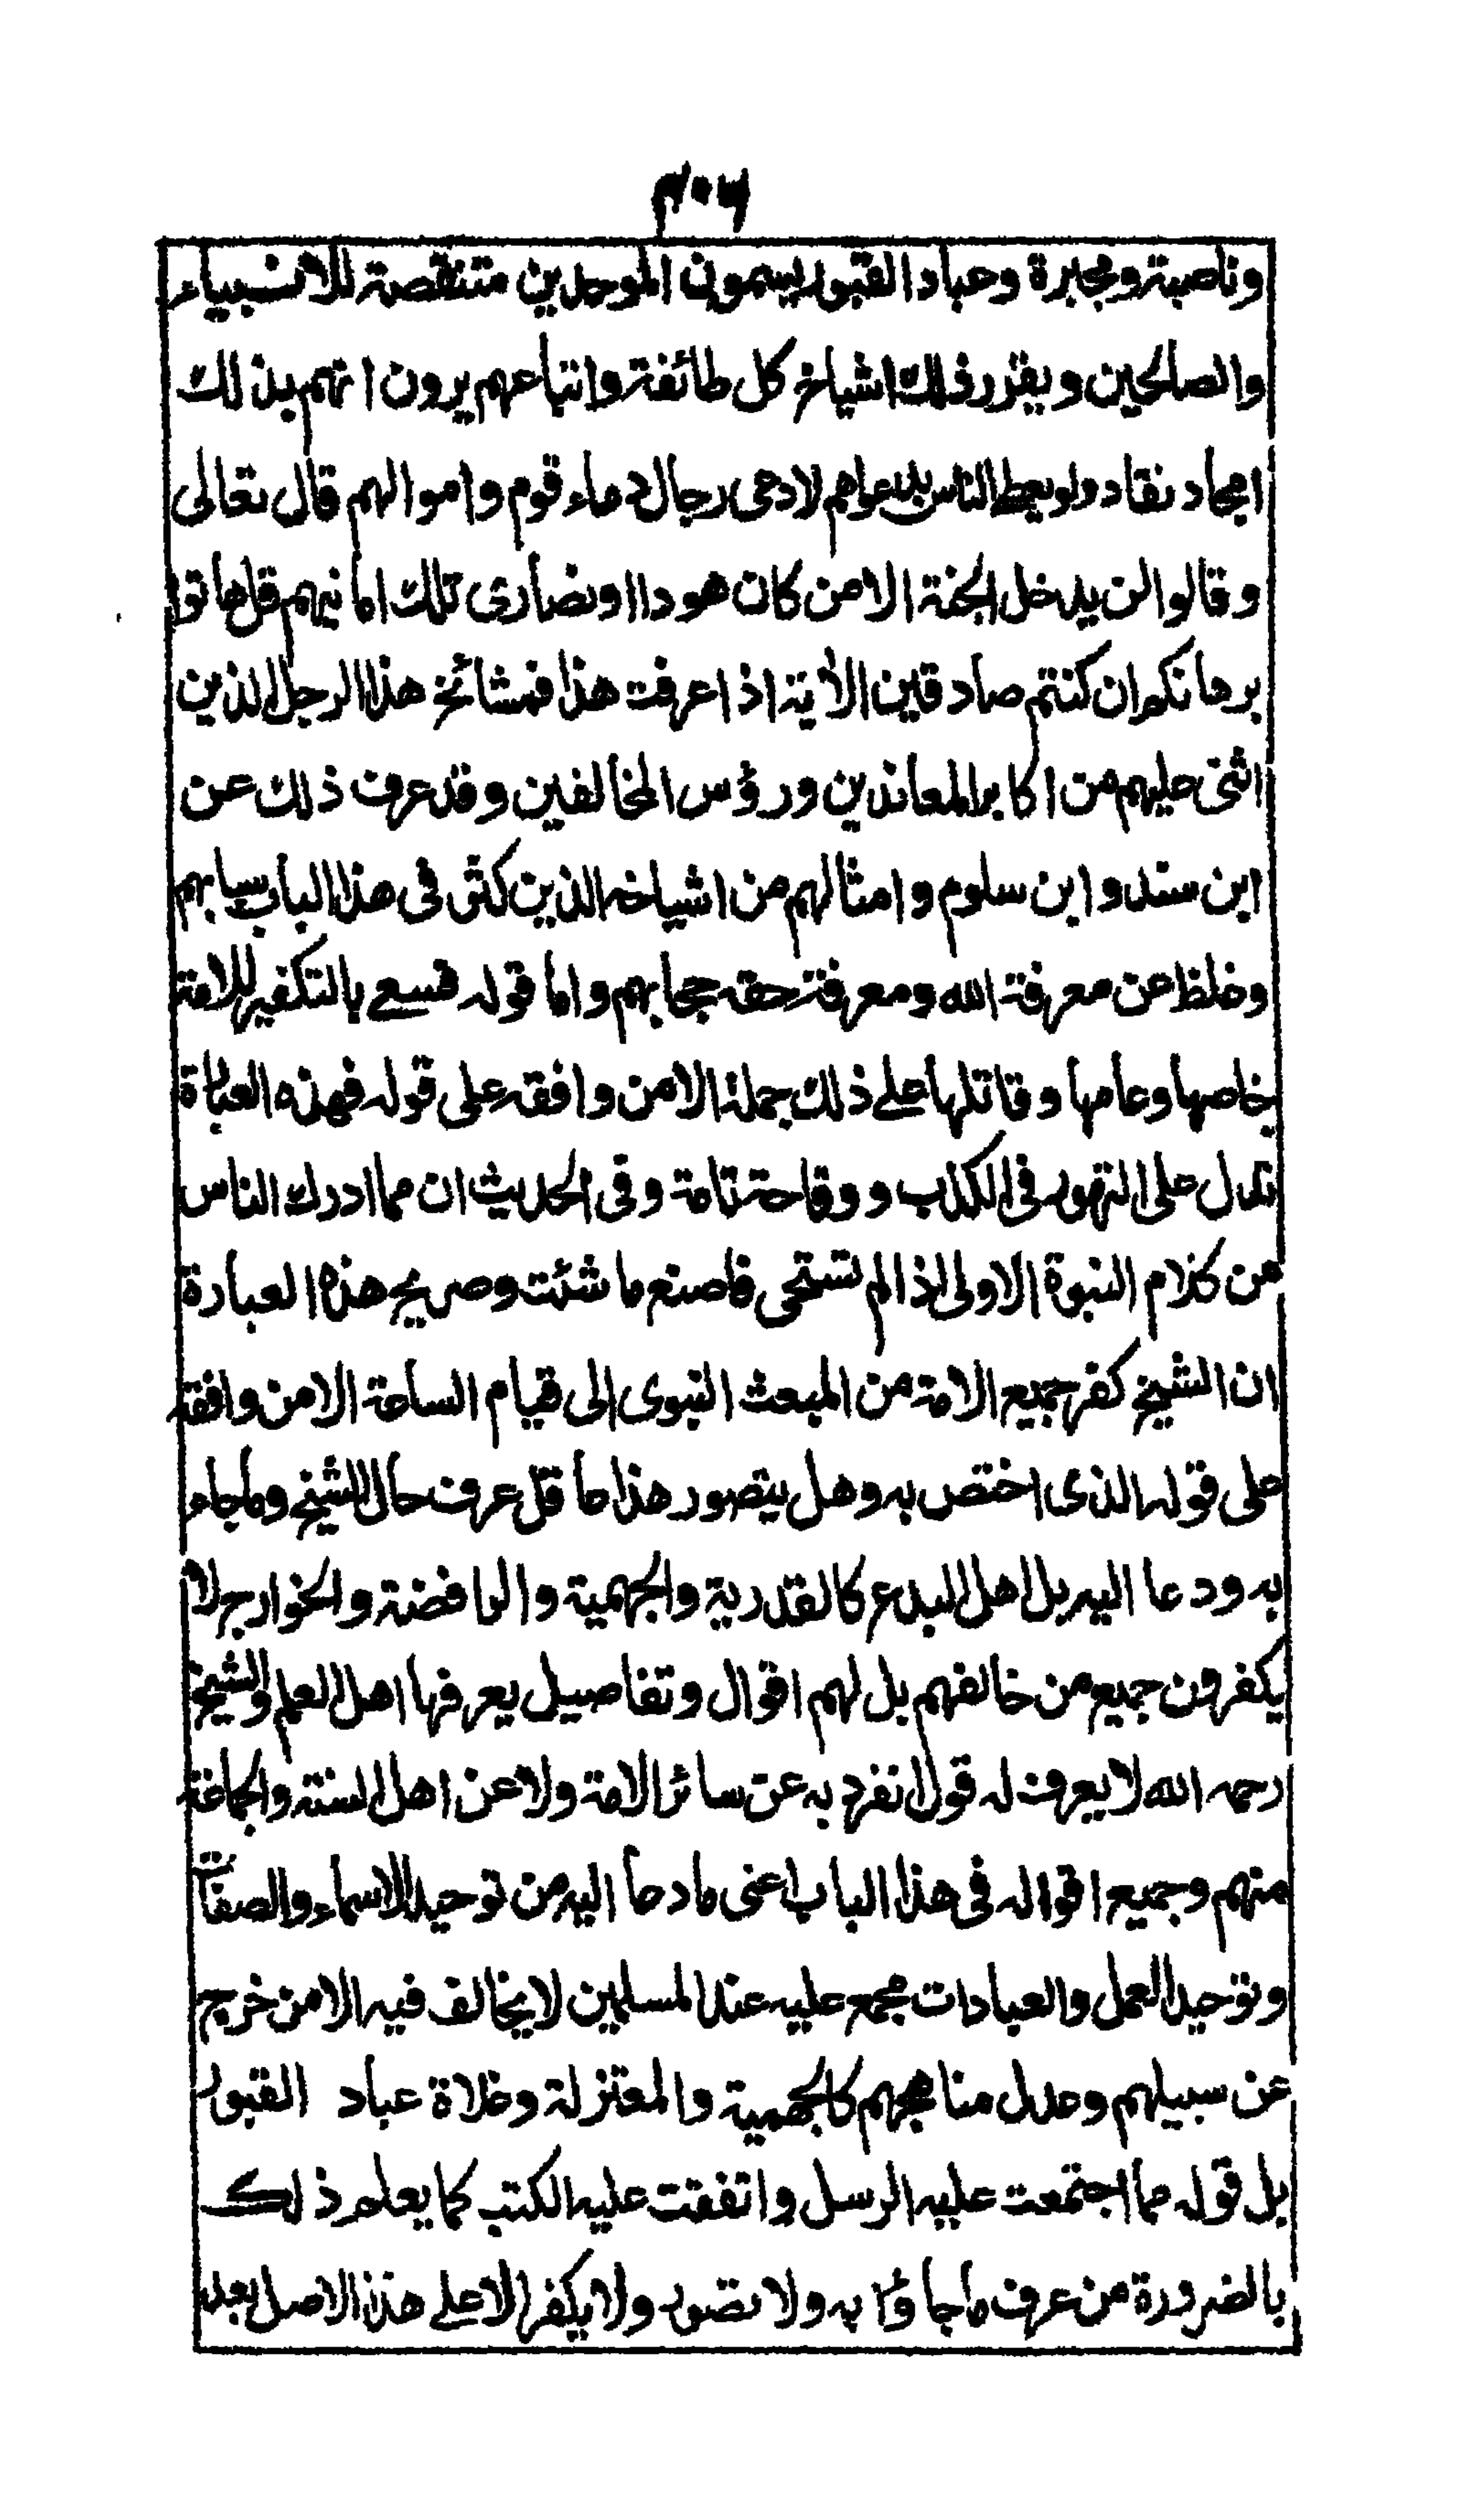 وناصبة ومجبرة وعباد القبور يسمون الموحدين متنقصة للانبياء
والصالحين ويقرر ذلك اشياخ كل طائفة واتباعهم يرون انهم بذلك
نقاد ولو يعطى الناس بدعواهم لادعى رجال دماء قوم واموالهم قال تعالى
وقالوا لن يدخل الجنة الا من كان هودا او نصارى تلك امانيهم قل هاتوا
برهانكم ان كنتم صادقين الاية اذا عرفت هذا فمشائخ هذا الرجل الذين
اثنى عليهم من اكابر المعاندين ورؤس المخالفين وقد عرف ذلك عن
ابن سند وابن سلوم وامثالهم من اشياخه الذين كثر فى هذا الباب سبابهم
وغلظ عن معرفة الله ومعرفة حقه حجابهم واما قوله فسعى بالتكفير للامة
خاصها وعامها وقاتلها على ذلك جملة الا من وافقه على قوله فهذه العبارة
تدل على التهور فى الكذب ووقاحة تامة وفى الحديث ان مما ادرك الناس
من كلام النبوة الاولى اذا لم تستحى فاصنع ما شئت وصريح هذه العبارة
ان الشيخ كفر جميع الامة من المبعث النبوى الى قيام الساعة الا من وافقه
على قوله الذى اختص به وهل يتصور هذا عاقل عرف حال الشيخ وما جاء
به ودعا اليه بل اهل البدع كالقدرية والجهمية والرافضة والخوارج لا
يكفرون جميع من خالفهم بل لهم اقوال وتفاصيل يعرفها اهل العلم والشيخ
رحمه الله لا يعرف له قول انفرد به عن سائر الامة ولا عن اهل السنة والجماعة
منهم وجميع اقواله فى هذا الباب اعنى ما دعا اليه من توحيد الاسماء والصفات
وتوحيد العمل والعبادات مجمع عليه عند المسلمين لا يخالف فيه الا من خرج
عن سبيلهم وعدل مناهجهم كالجهمية والمعتزلة وغلاة عباد القبور
بل قوله مما اجتمعت عليه الرسل واتفقت عليه الكتب كما يعلم ذلك
بالضرورة من عرف ما جاؤا به ولا تصور ولا يكفر الا على هذا الاصل بعد